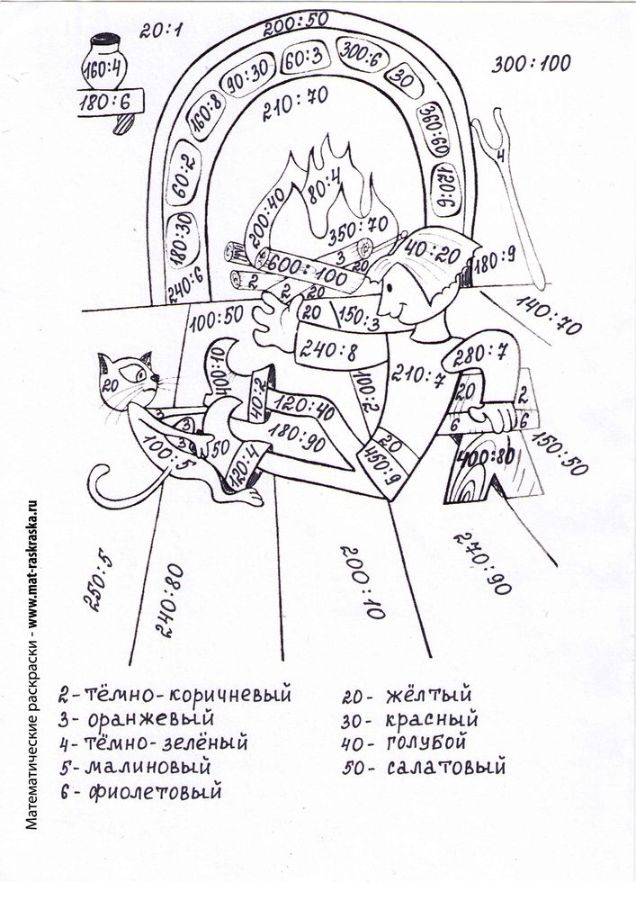 20:1
200:50
160:4
180:6
90:30
60:3
300:6
30
300:100
160:8
210:70
360:60
4
60:2
120:6
80:4
200:40
350:70
180:30
3
40:20
600:100
20
180:9
240:6
2
2
20
140:70
100:50
20
150:3
240:8
280:7
100:10
100:2
210:7
20
40:2
20
2
120:40
3
50
180:90
20
6
6
100:5
3
120:4
450:9
400:80
150:50
250:5
240:80
200:10
270:90
2-тёмно-коричневый
3-оранжевый
4-тёмно-зелёный
5-малиновый
6-фиолетовый
20- жёлтый
30- красный
40- голубой
50- салатовый
Математические раскраски - www.mat-raskraska.ru